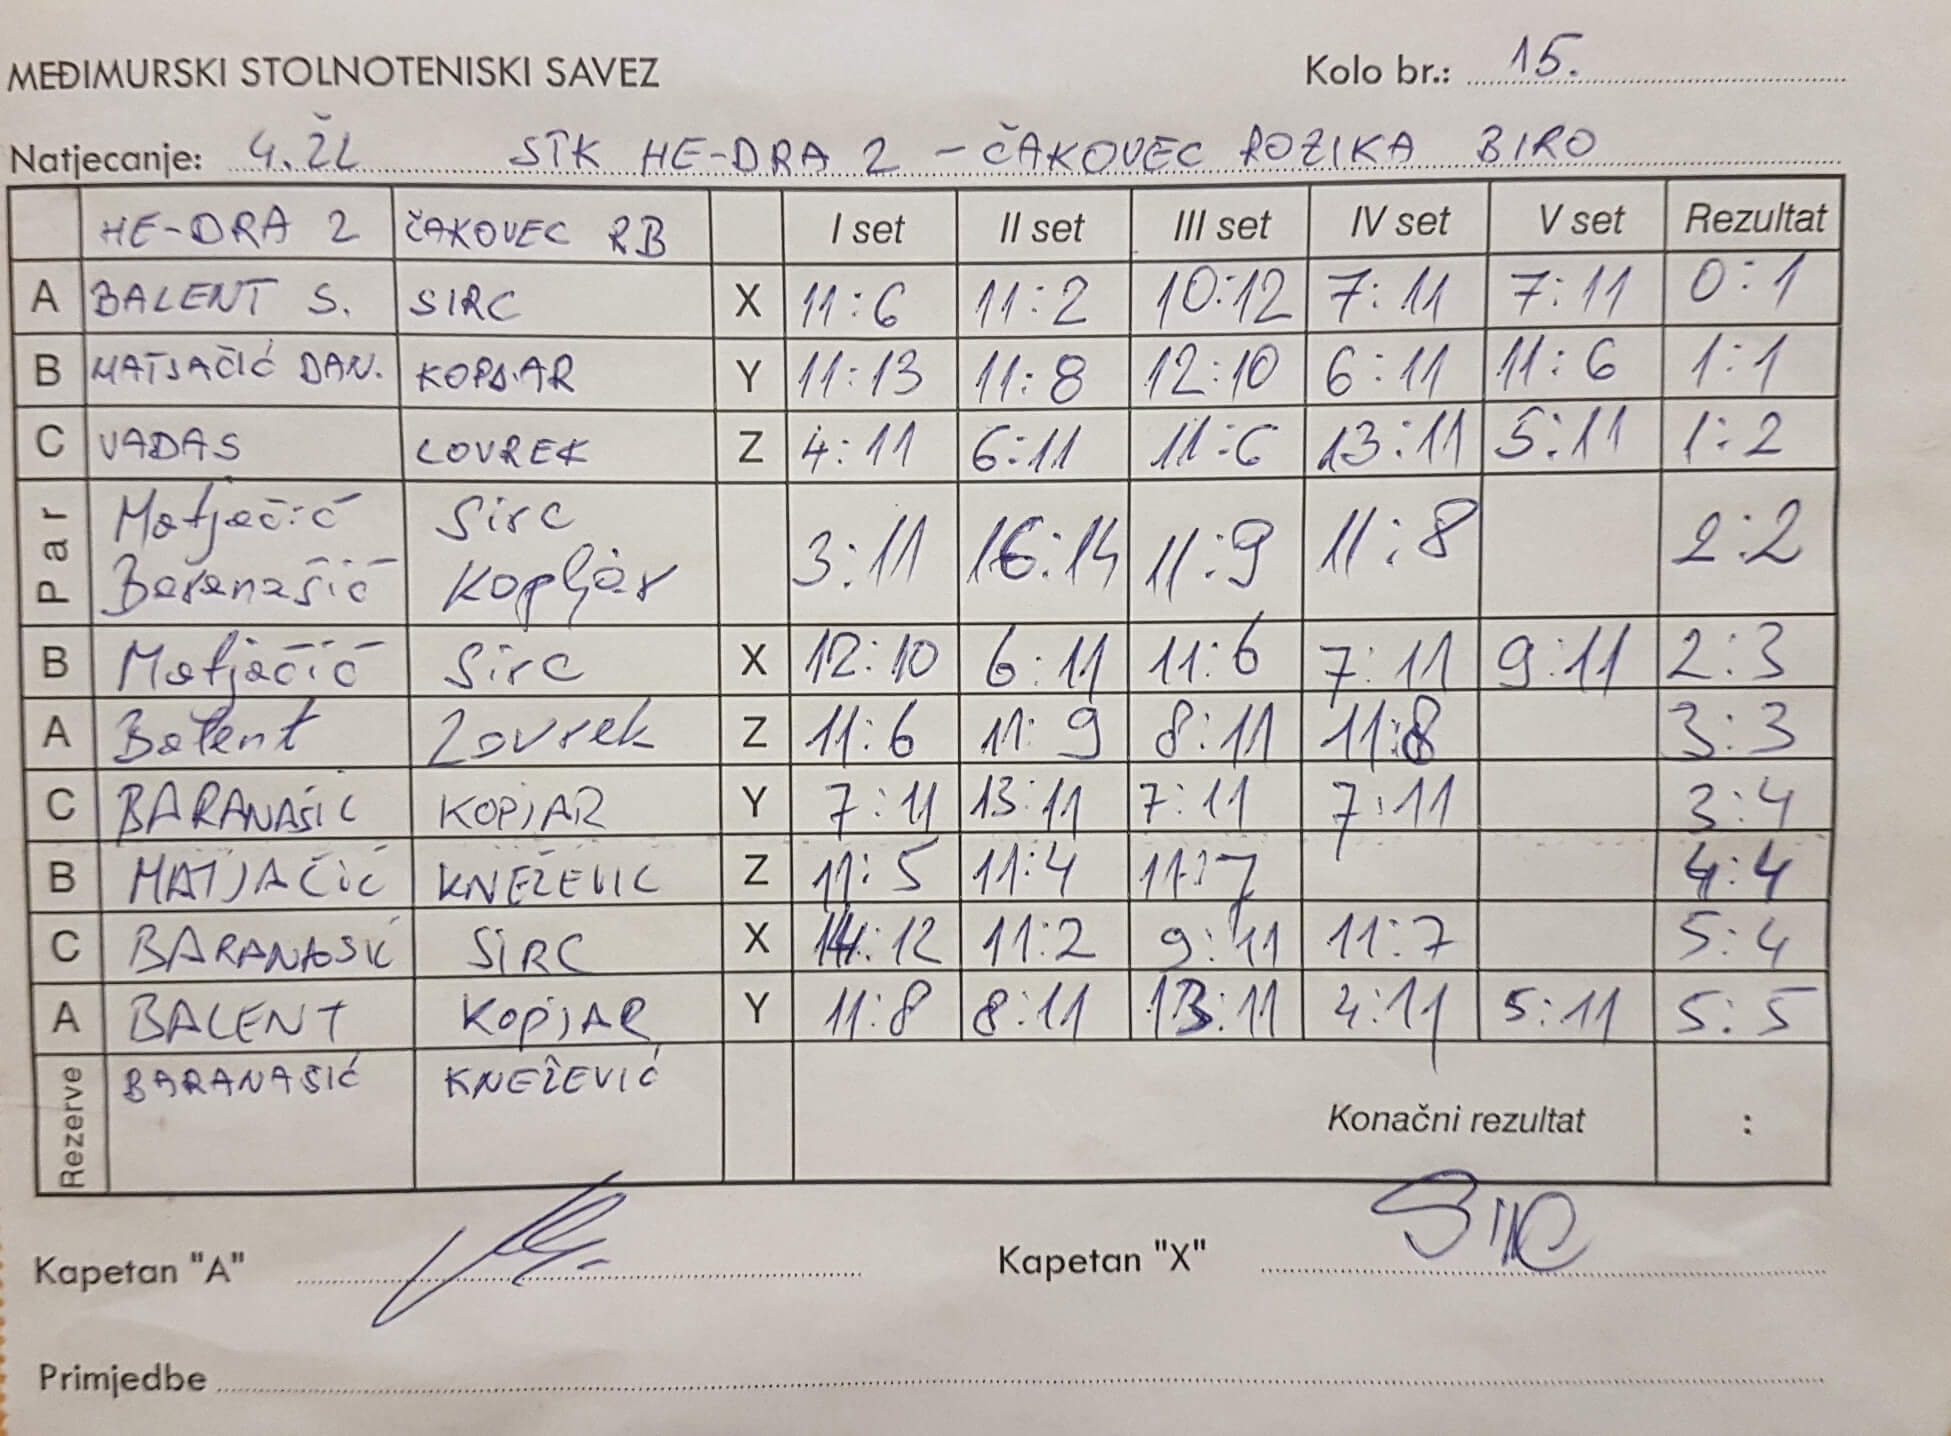 MEĐIMURSKI STOLNOTENISKI SAVEZ Kolo br.: 15.
Natjecanje: 4. ŽL STK HE-DRA 2 - ČAKOVEC ROZIKA BIRO
HE-DRA 2 ČAKOVEC RB I set II set III set IV set V set Rezultat
A BALENT S. SIRC X 11:6 11:2 10:12 7:11 7:11 0:1
B MATJAČIĆ DAN. KOPJAR Y 11:13 11:8 12:10 6:11 11:6 1:1
C VADAS LOVREK Z 4:11 6:11 11:6 13:11 5:11 1:2
Par Matjačić Sirc 3:11 16:14 11:9 11:8 2:2
Baranašić Kopljar
B Matjačić Sirc X 12:10 6:11 11:6 7:11 9:11 2:3
A Balent Lovrek Z 11:6 11:9 8:11 11:8 3:3
C BARANAŠIĆ KOPJAR Y 7:11 13:11 7:11 7:11 3:4
B MATJAČIĆ KNEŽEVIĆ Z 11:5 11:4 11:7 4:4
C BARANAŠIĆ SIRC X 14:12 11:2 9:11 11:7 5:4
A BALENT KOPJAR Y 11:8 8:11 13:11 4:11 5:11 5:5
Rezerve BARANAŠIĆ KNEŽEVIĆ
Konačni rezultat :
Kapetan "A" Kapetan "X" Sirc
Primjedbe